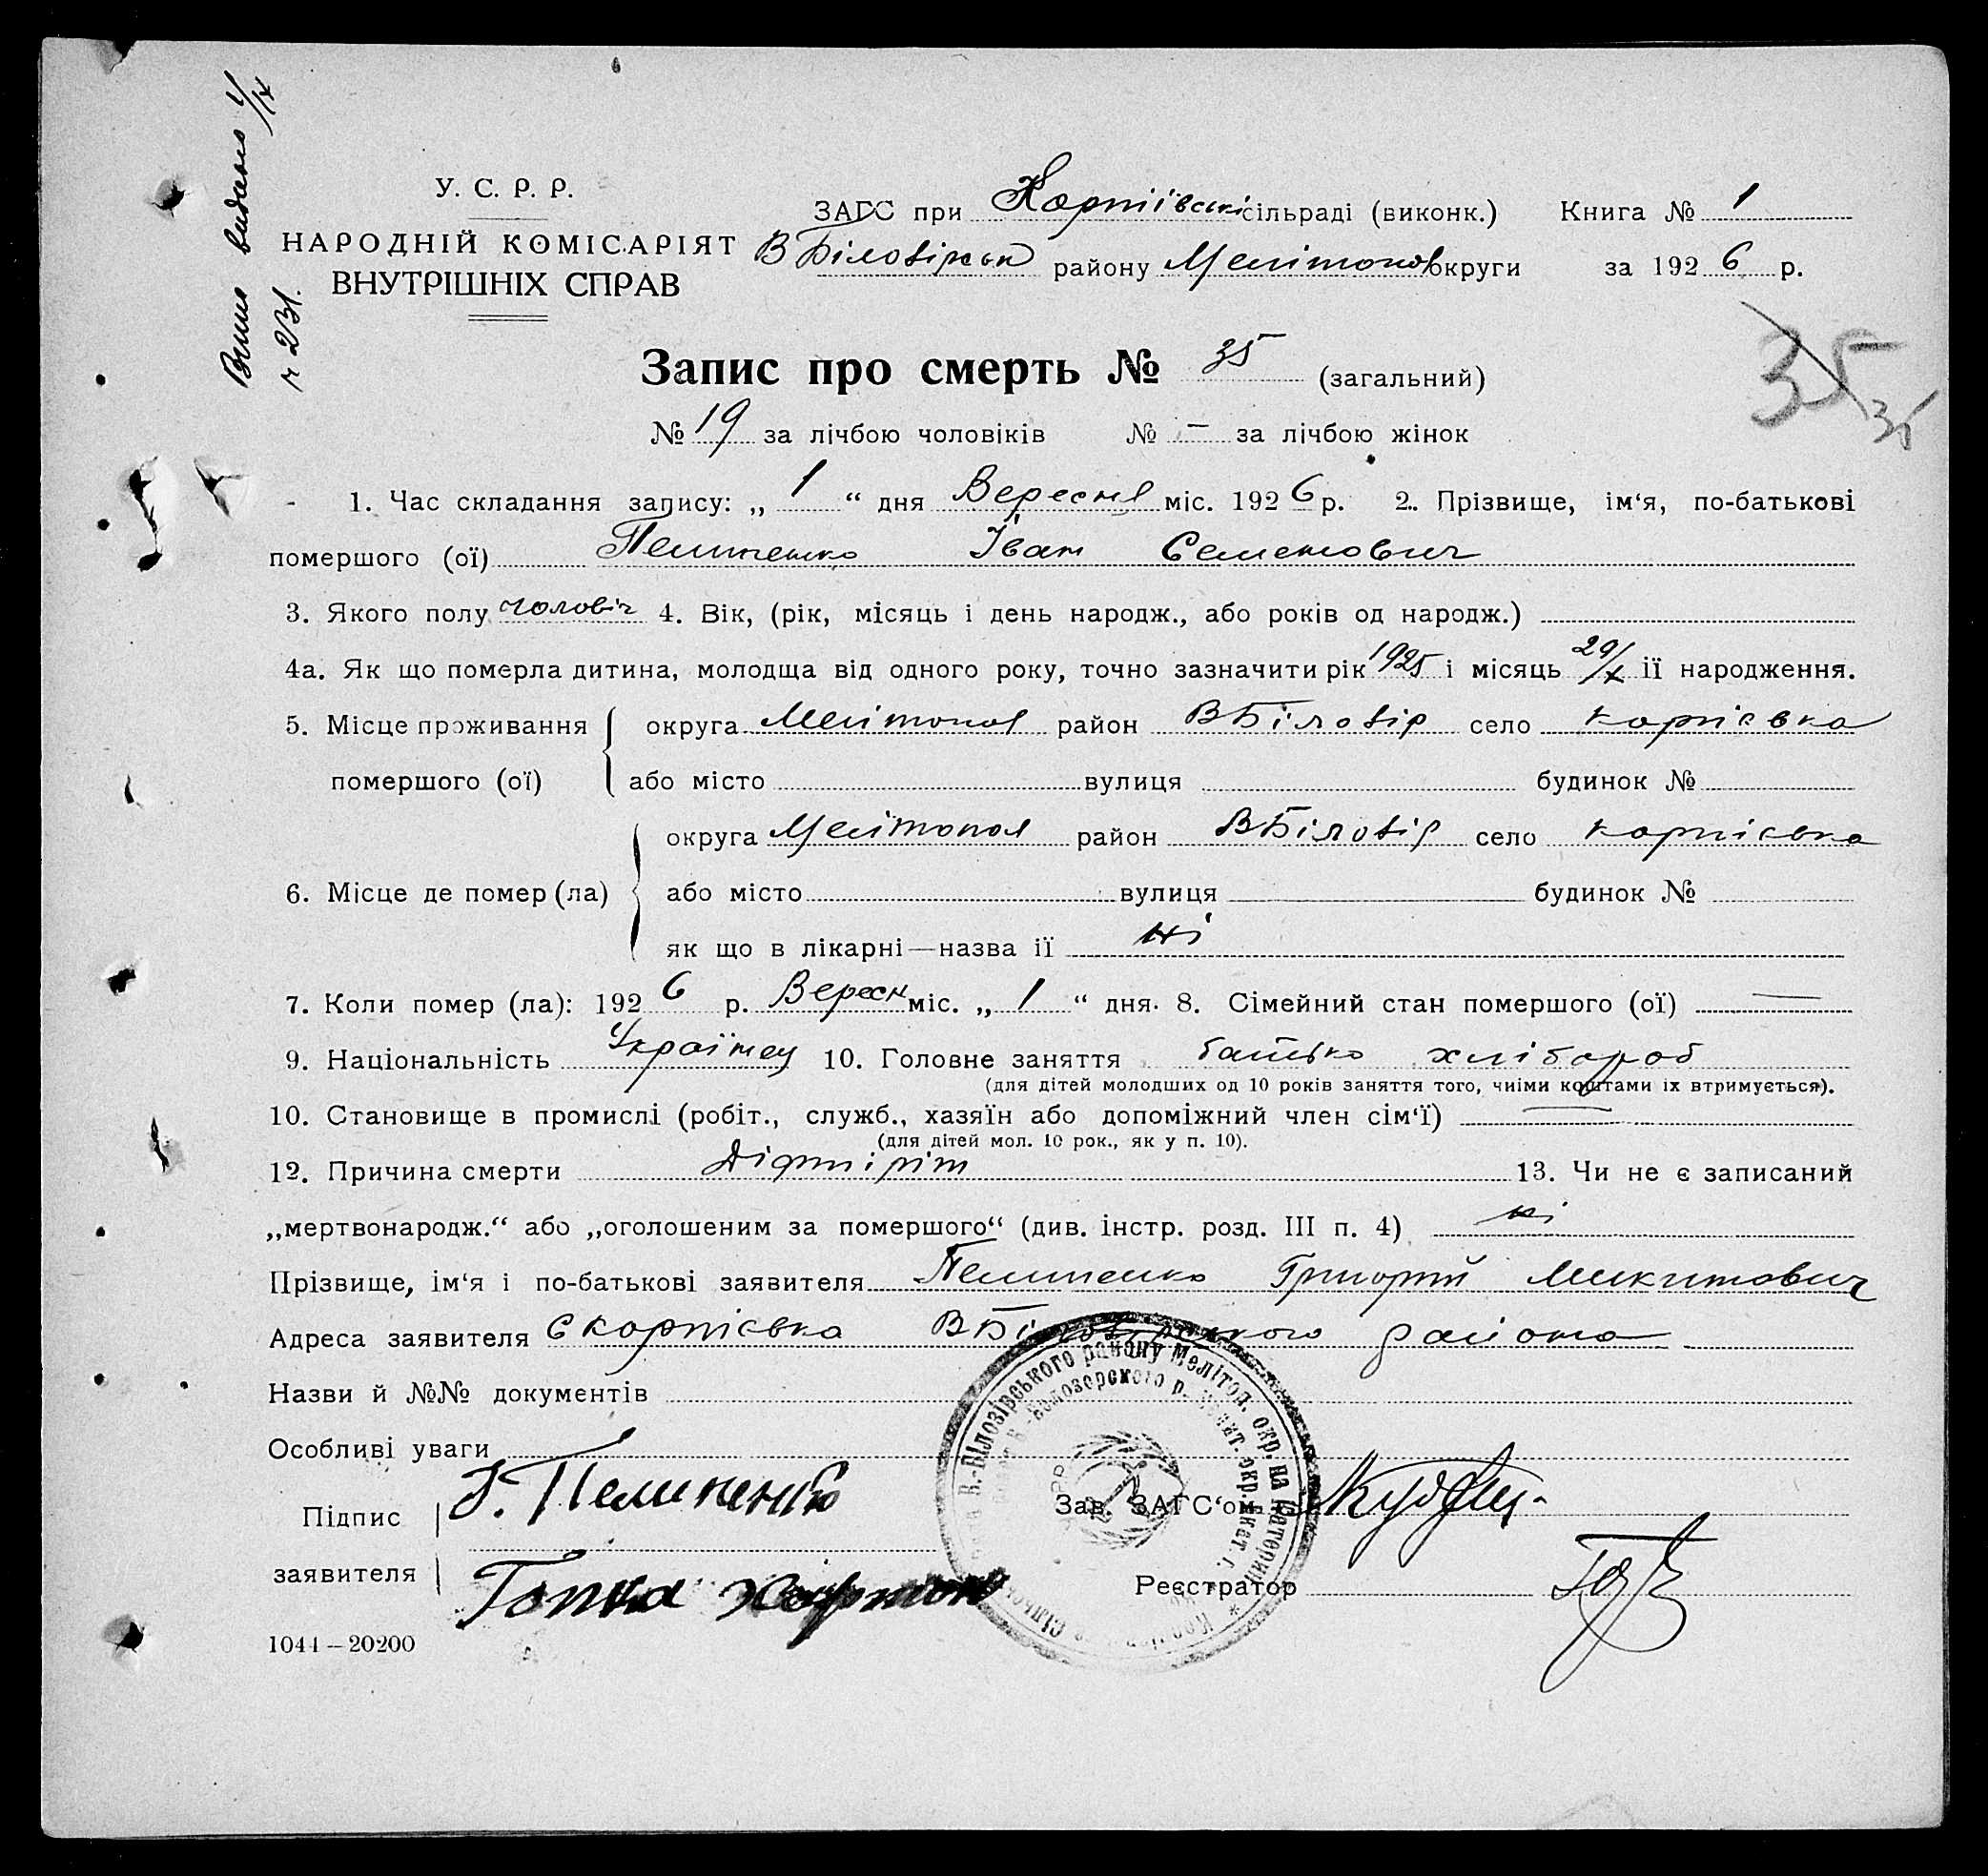 Випис видано 4/IX
ч 231.
У. С. Р. Р.
НАРОДНІЙ КОМІСАРІЯТ
ВНУТРІШНІХ СПРАВ
ЗАГС при Карпіївські сільраді (виконк.) Книга № 1
В Білозірськ району Мелітопол округи за 1926 р.
Запис про смерть № 35 (загальний)
35
35
№ 19 за лічбою чоловіків № – за лічбою жінок
1. Час складання запису: „ 1 “ дня Вересня міс. 1926 р. 2. Прізвище, ім‘я, по-батькові
помершого (ої) Пелипенко Іван Семенович
3. Якого полу чоловіч 4. Вік, (рік, місяць і день народж., або років од народж.)
4а. Як що померла дитина, молодща від одного року, точно зазначити рік 1925 і місяць 29/X ії народження.
5. Місце проживання помершого (ої) округа Мелітопол район ВБілозір село Карпієвка
або місто вулиця будинок №
6. Місце де помер (ла) округа Мелітопол район ВБілозір село Карпієвка
або місто вулиця будинок №
як що в лікарні—назва ії ні
7. Коли помер (ла): 1926 р. Вересн міс. „ 1 “ дня. 8. Сімейний стан помершого (ої) —
9. Національність Українец 10. Головне заняття батько хлібороб
(для дітей молодших од 10 років заняття того, чиіми коштами іх втримується).
10. Становище в промислі (робіт., служб., хазяїн або допоміжний член сім‘ї) —
(для дітей мол. 10 рок., як у п. 10).
12. Причина смерти Діфтіріт 13. Чи не є записаний
„мертвонародж.“ або „оголошеним за помершого“ (див. інстр. розд. III п. 4) ні
Прізвище, ім‘я і по-батькові заявителя Пелипенко Григорій Микитович
Адреса заявителя с Карпієвка ВБілозірського района
Назви й №№ документів
Особливі уваги
Підпис заявителя Г. Пелипенко
Гопка Харитон
Зав. ЗАГС‘ом
Реєстратор
В.-Білозірського району Мелітоп. окр. на Катерин
1041 – 20200